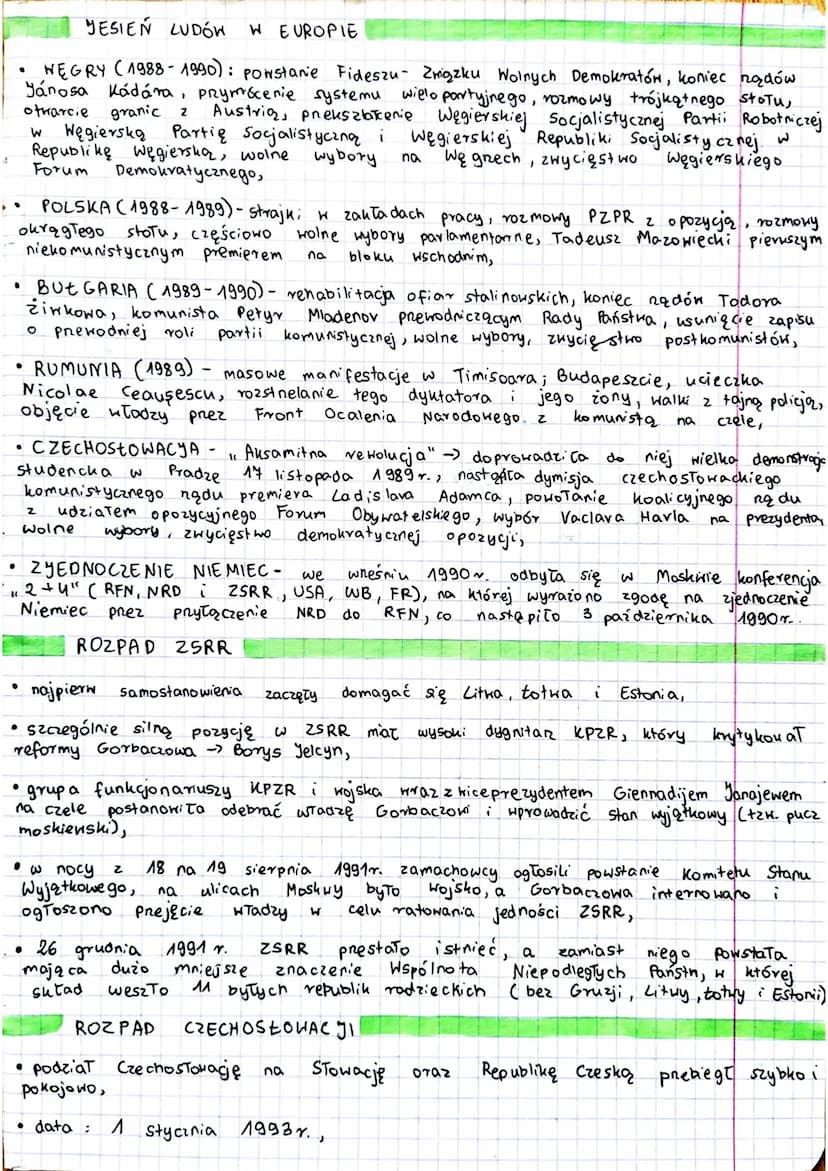 JESIEŃ LUDÓW W EUROPIE
• WĘGRY (1988-1990): powstanie Fideszu - Związku Wolnych Demokratów, koniec rządów
Jánosa Kádára, przywrócenie systemu wielopartyjnego, rozmowy trójkątnego stołu,
otwarcie granic z Austrią, przekształcenie Węgierskiej Socjalistycznej Partii Robotniczej
w Węgierską Partię Socjalistyczną i Węgierskiej Republiki Socjalistycznej w
Republikę Węgierską, wolne wybory na Węgrzech, zwycięstwo Węgierskiego
Forum Demokratycznego,
• POLSKA (1988-1989) - strajki w zakładach pracy, rozmowy PZPR z opozycją, rozmowy
okrągłego stołu, częściowo wolne wybory parlamentarne, Tadeusz Mazowiecki pierwszym
niekomunistycznym premierem na bloku wschodnim,
• BUŁGARIA (1989-1990) - rehabilitacja ofiar stalinowskich, koniec rządów Todora
Żiwkowa, komunista Petyr Mładenov przewodniczącym Rady Państwa, usunięcie zapisu
o przewodniej roli partii komunistycznej, wolne wybory, zwycięstwo postkomunistów,
• RUMUNIA (1989) - masowe manifestacje w Timisoara; Budapeszcie, ucieczka
Nicolae Ceauşescu, rozstrzelanie tego dyktatora i jego żony, walki z tajną policją,
objęcie władzy przez Front Ocalenia Narodowego z komunistą na czele,
• CZECHOSŁOWACJA - "Aksamitna rewolucja" → doprowadziła do niej wielka demonstracja
studencka w Pradze 17 listopada 1989r., nastąpiła dymisja czechosłowackiego
komunistycznego rządu premiera Ladislava Adamca, powołanie koalicyjnego rządu
z udziałem opozycyjnego Forum Obywatelskiego, wybór Vaclava Havla na prezydenta,
wolne wybory, zwycięstwo demokratycznej opozycji,
• ZJEDNOCZENIE NIEMIEC - we wrześniu 1990r. odbyła się w Moskwie konferencja
"2+4" (RFN, NRD i ZSRR, USA, WB, FR), na której wyrażono zgodę na zjednoczenie
Niemiec przez przyłączenie NRD do RFN, co nastąpiło 3 października 1990r.
ROZPAD ZSRR
• najpierw samostanowienia zaczęły domagać się Litwa, Łotwa i Estonia,
• szczególnie silną pozycję w ZSRR miał wysoki dygnitarz KPZR, który krytykował
reformy Gorbaczowa → Borys Jelcyn,
• grupa funkcjonariuszy KPZR i wojska wraz z wiceprezydentem Giennadijem Janajewem
na czele postanowiła odebrać władzę Gorbaczowi i wprowadzić stan wyjątkowy (tzw. pucz
moskiewski),
• w nocy z 18 na 19 sierpnia 1991r. zamachowcy ogłosili powstanie Komitetu Stanu
Wyjątkowego, na ulicach Moskwy było wojsko, a Gorbaczowa internowano i
ogłoszono przejęcie władzy w celu ratowania jedności ZSRR,
• 26 grudnia 1991 r. ZSRR przestało istnieć, a zamiast niego powstała
mająca dużo mniejsze znaczenie Wspólnota Niepodległych Państw, w której
skład weszło 11 byłych republik radzieckich (bez Gruzji, Litwy, Łotwy i Estonii)
ROZPAD CZECHOSŁOWACJI
• podział Czechosłowację na Słowację oraz Republikę Czeską przebiegł szybko i
pokojowo,
• data: 1 stycznia 1993r.,